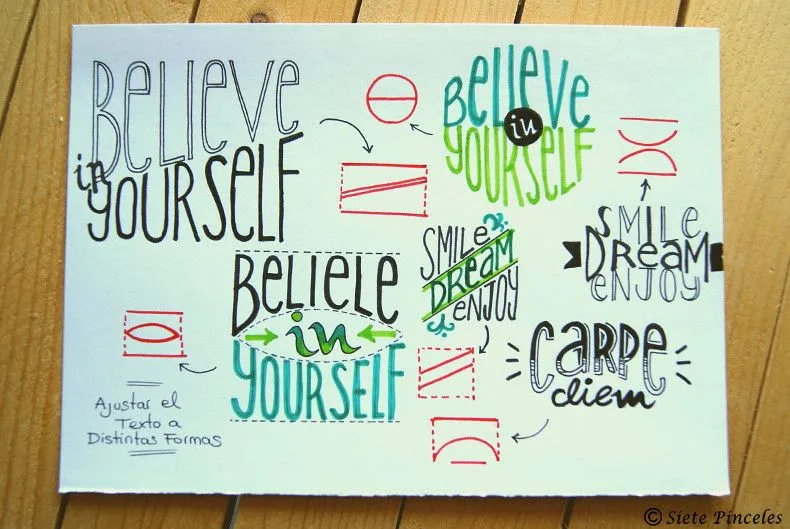 BELIEVE
in
YOURSELF
BELIEVE
in
YOURSELF
SMILE
DREAM
ENJOY
SMILE
DREAM
ENJOY
BELIELE
in
YOURSELF
CARPE
diem
Ajustar el
Texto a
Distintas Formas
© Siete Pinceles